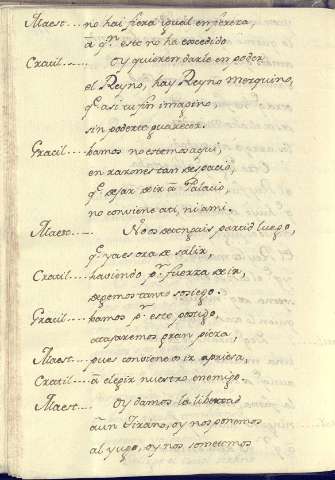 Maest.... no hai fiera igual en fereza,
â qn. este no ha excedido
Cratil..... Oy quieren darle en poder
el Reyno, hay Reyno mezquino,
qe. asi tu fin imagino,
sin poderte guarecer.
Gracil.... bamos no estemos aqui,
en razones tan despacio,
qe. dejar de ir â Palacio,
no conviene a ti, ni a mi.
Maest..... No os detengais partid luego,
qe. ya es ora de salir,
Cratil..... haviendo pr. fuerza de ir,
dejemos tanto sosiego.
Gracil.... bamos pr. este postigo,
atajaremos gran pieza,
Maest.... pues conviene ir apriesa,
Cratil.... â elegir nuestro enemigo.
Maest..... Oy damos la libertad
â un Tirano, oy nos ponemos
al yugo, oy nos sometemos